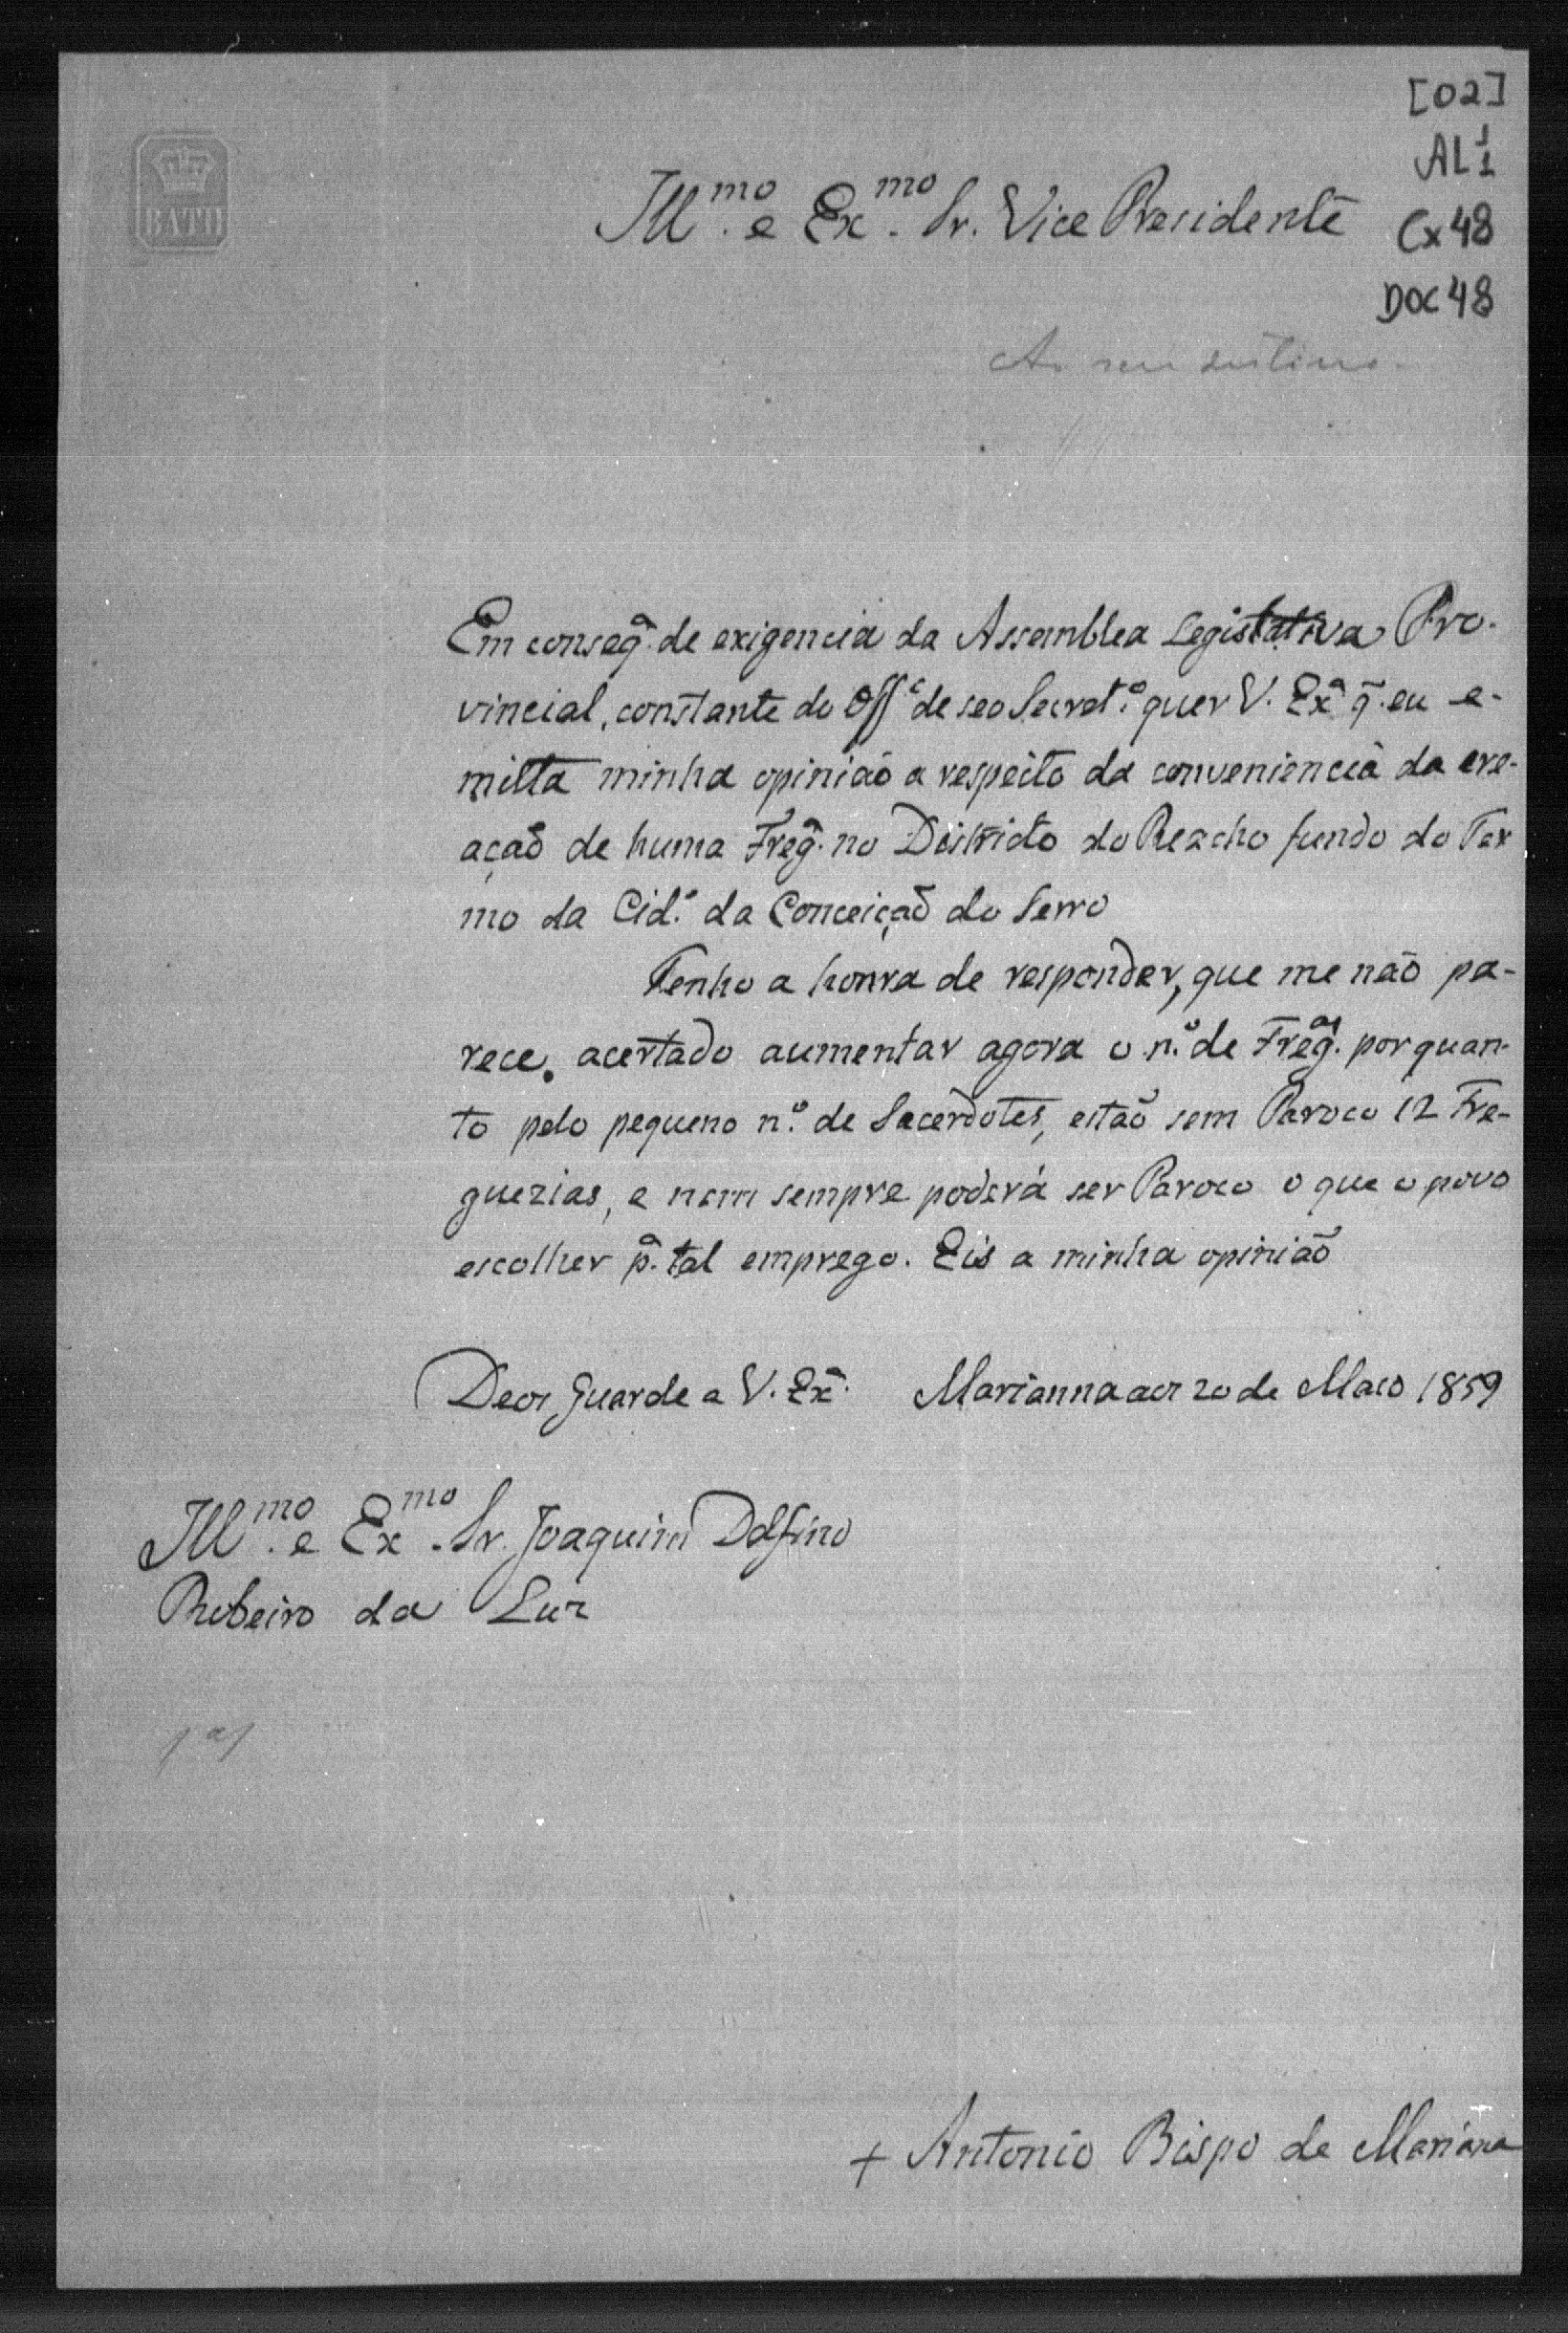 [02]
AL 1
1
Cx 48
DOC 48
BATH
Ill.mo e Ex.mo Sr. Vice Presidente
Ao seu destino.
Em conseq.a de exigencia da Assemblea Legislativa Pro-
vincial, constante do Off.o de seo Secret.o quer V. Ex.a q. eu e-
mitta minha opinião a respeito da conveniencia da cre-
ação de huma Freg.a no Districto do Reacho fundo do Ter
mo da Cid.e da Conceição do Serro
Tenho a honra de responder, que me não pa-
rece. acertado aumentar agora o n.o de Freg.as porquan-
to pelo pequeno n.o de Sacerdotes, estão sem Paroco 12 Fre-
guezias, e nem sempre poderá ser Paroco o que o povo
escolher p.a tal emprego. Eis a minha opinião
Deos Guarde a V. Ex.a Marianna aos 20 de Maio 1859
Ill.mo e Ex.mo Sr. Joaquim Delfino
Ribeiro da Luz
+ Antonio Bispo de Mariana